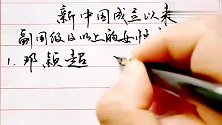 新中国成立以来
副国级以上的女性
1.邓颖超